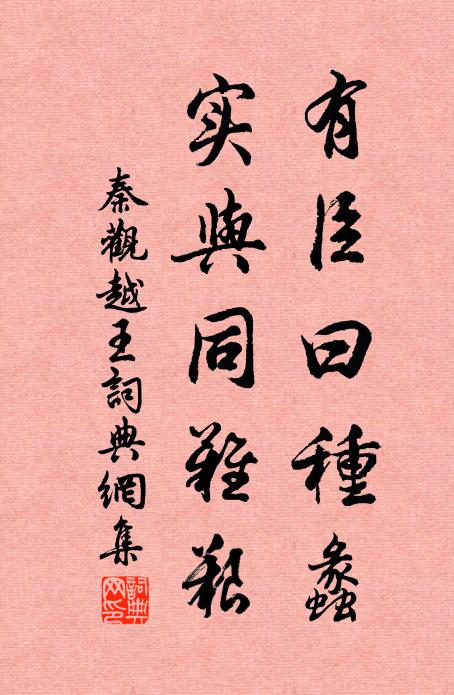 有臣曰種蠡
实與同難艱
秦觀越王詞典網集
詞典网印